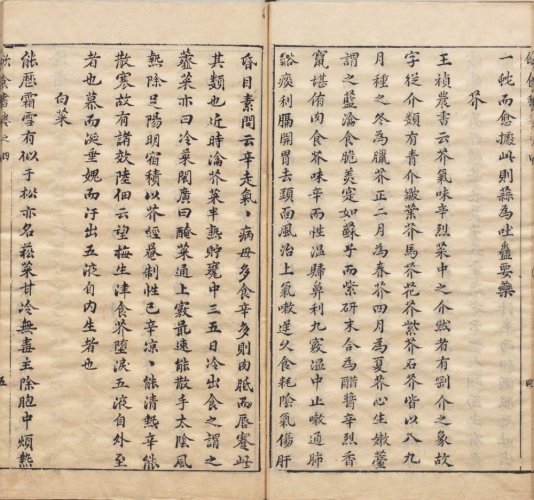 一䖳而愈據此則蒜為吐蠱要藥
芥
王禎農書云芥氣味辛烈菜中之介然者有剛介之象故
字從介類有青介皺葉芥馬芥花芥紫芥石芥皆以八九
月種之冬為臘芥正二月為春芥四月為夏芥心生嫩薹
謂之藍瀹食脆美寔如蘇子而紫研末合為醋醬辛烈香
竄堪侑肉食芥味辛而性溫歸鼻利九竅溫中止嗽通肺
豁痰利膈開胃去頭面風治上氣嗽逆久食耗陰氣傷肝
昏目素問云辛走氣氣病毋多食辛多則肉胝而唇蹇此
其類也近時瀹芥菜半熱貯甕中三五日冷出食之謂之
虀菜亦曰冷菜閩廣曰醃菜通上竅最速能散手太陰風
熱除足陽明宿積以芥經罨制性已辛涼涼能清熱辛能
散寒故有諸效陸佃云望梅生津食芥墮淚五液自外至
者也慕而涎垂媿而汗出五液自內生者也
白菜
能歷霜雪有似于松亦名菘菜甘冷無毒主除胞中煩熱